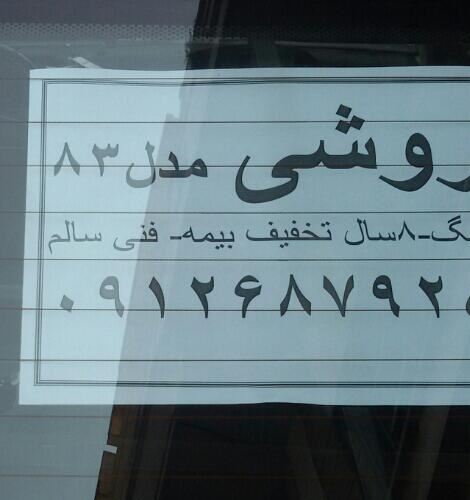 روشی مدل ۸۳
نگ-۸سال تخفیف بیمه- فنی سالم
۰۹۱۲۶۸۷۹۲